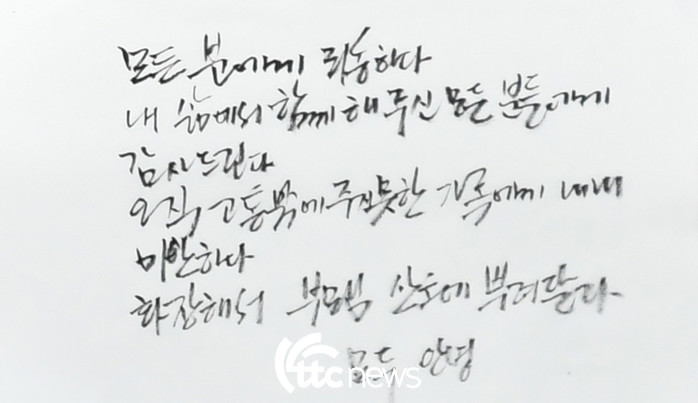 모든 분에게 죄송하다
내 삶에서 함께해주신 모든 분들에게
감사드린다
오직 고통밖에 주지 못한 가족에게 내내
미안하다
화장해서 부모님 산소에 뿌려달라
모두 안녕
ttc news